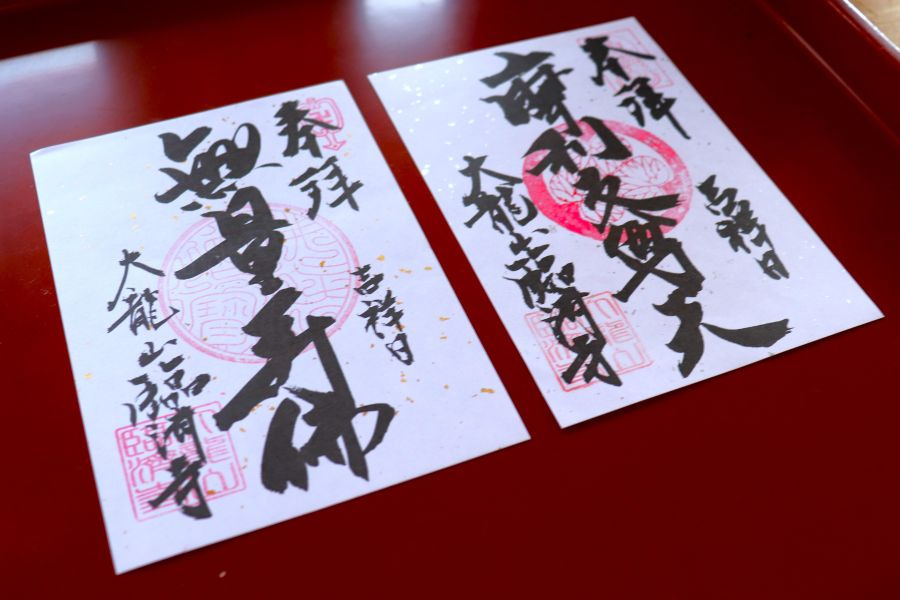 奉拝
無量寿佛
吉祥日
大龍山臨済寺
奉拝
摩利支尊天
吉祥日
大龍山臨済寺